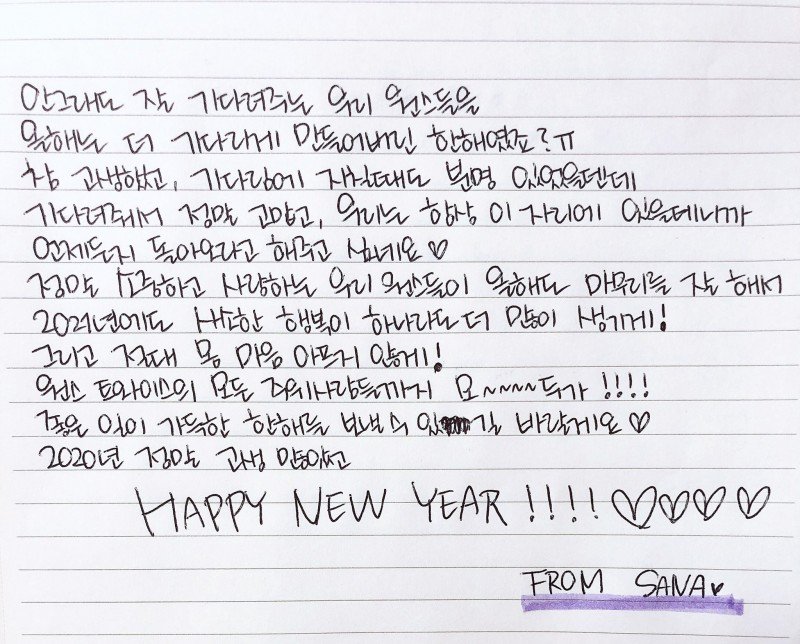 안그래도 잘 기다려주는 우리 원스들을
올해는 더 기다리게 만들어버린 한해였죠?ㅠ
참 고생했고, 기다림에 지칠때도 분명 있었을텐데
기다려줘서 정말 고맙고, 우리는 항상 이 자리에 있을테니까
언제든지 돌아오라고 해주고 싶네요♡
정말 소중하고 사랑하는 우리 원스들이 올해도 마무리를 잘 해서
2021년에도 사소한 행복이 하나라도 더 많이 생기게!
그리고 절대 몸 마음 아프지 않게!
원스 트와이스의 모든 주위사람들까지 모~~~~두가 !!!!
좋은 일이 가득한 한해를 보낼 수 있길 바랄게요♡
2020년 정말 고생 많았고
HAPPY NEW YEAR !!!!♡♡♡♡
FROM SANA♥